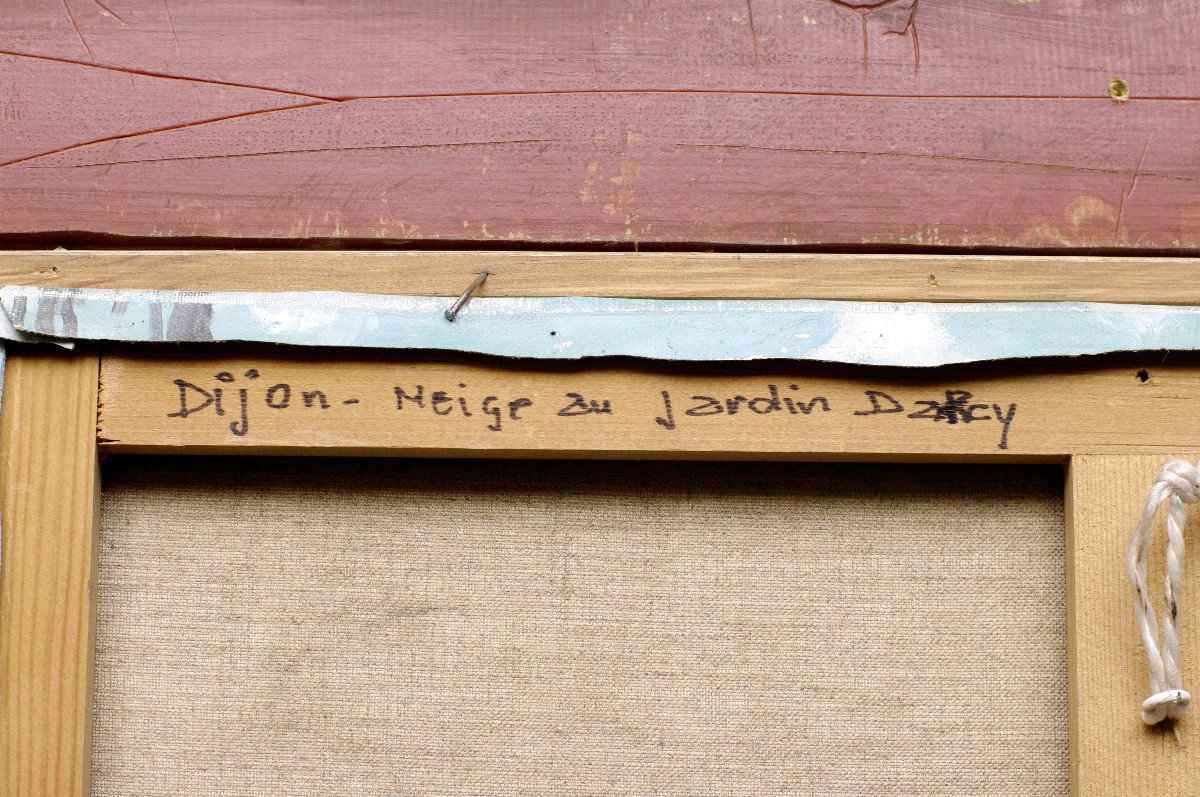 Dijon - Neige au Jardin Darcy